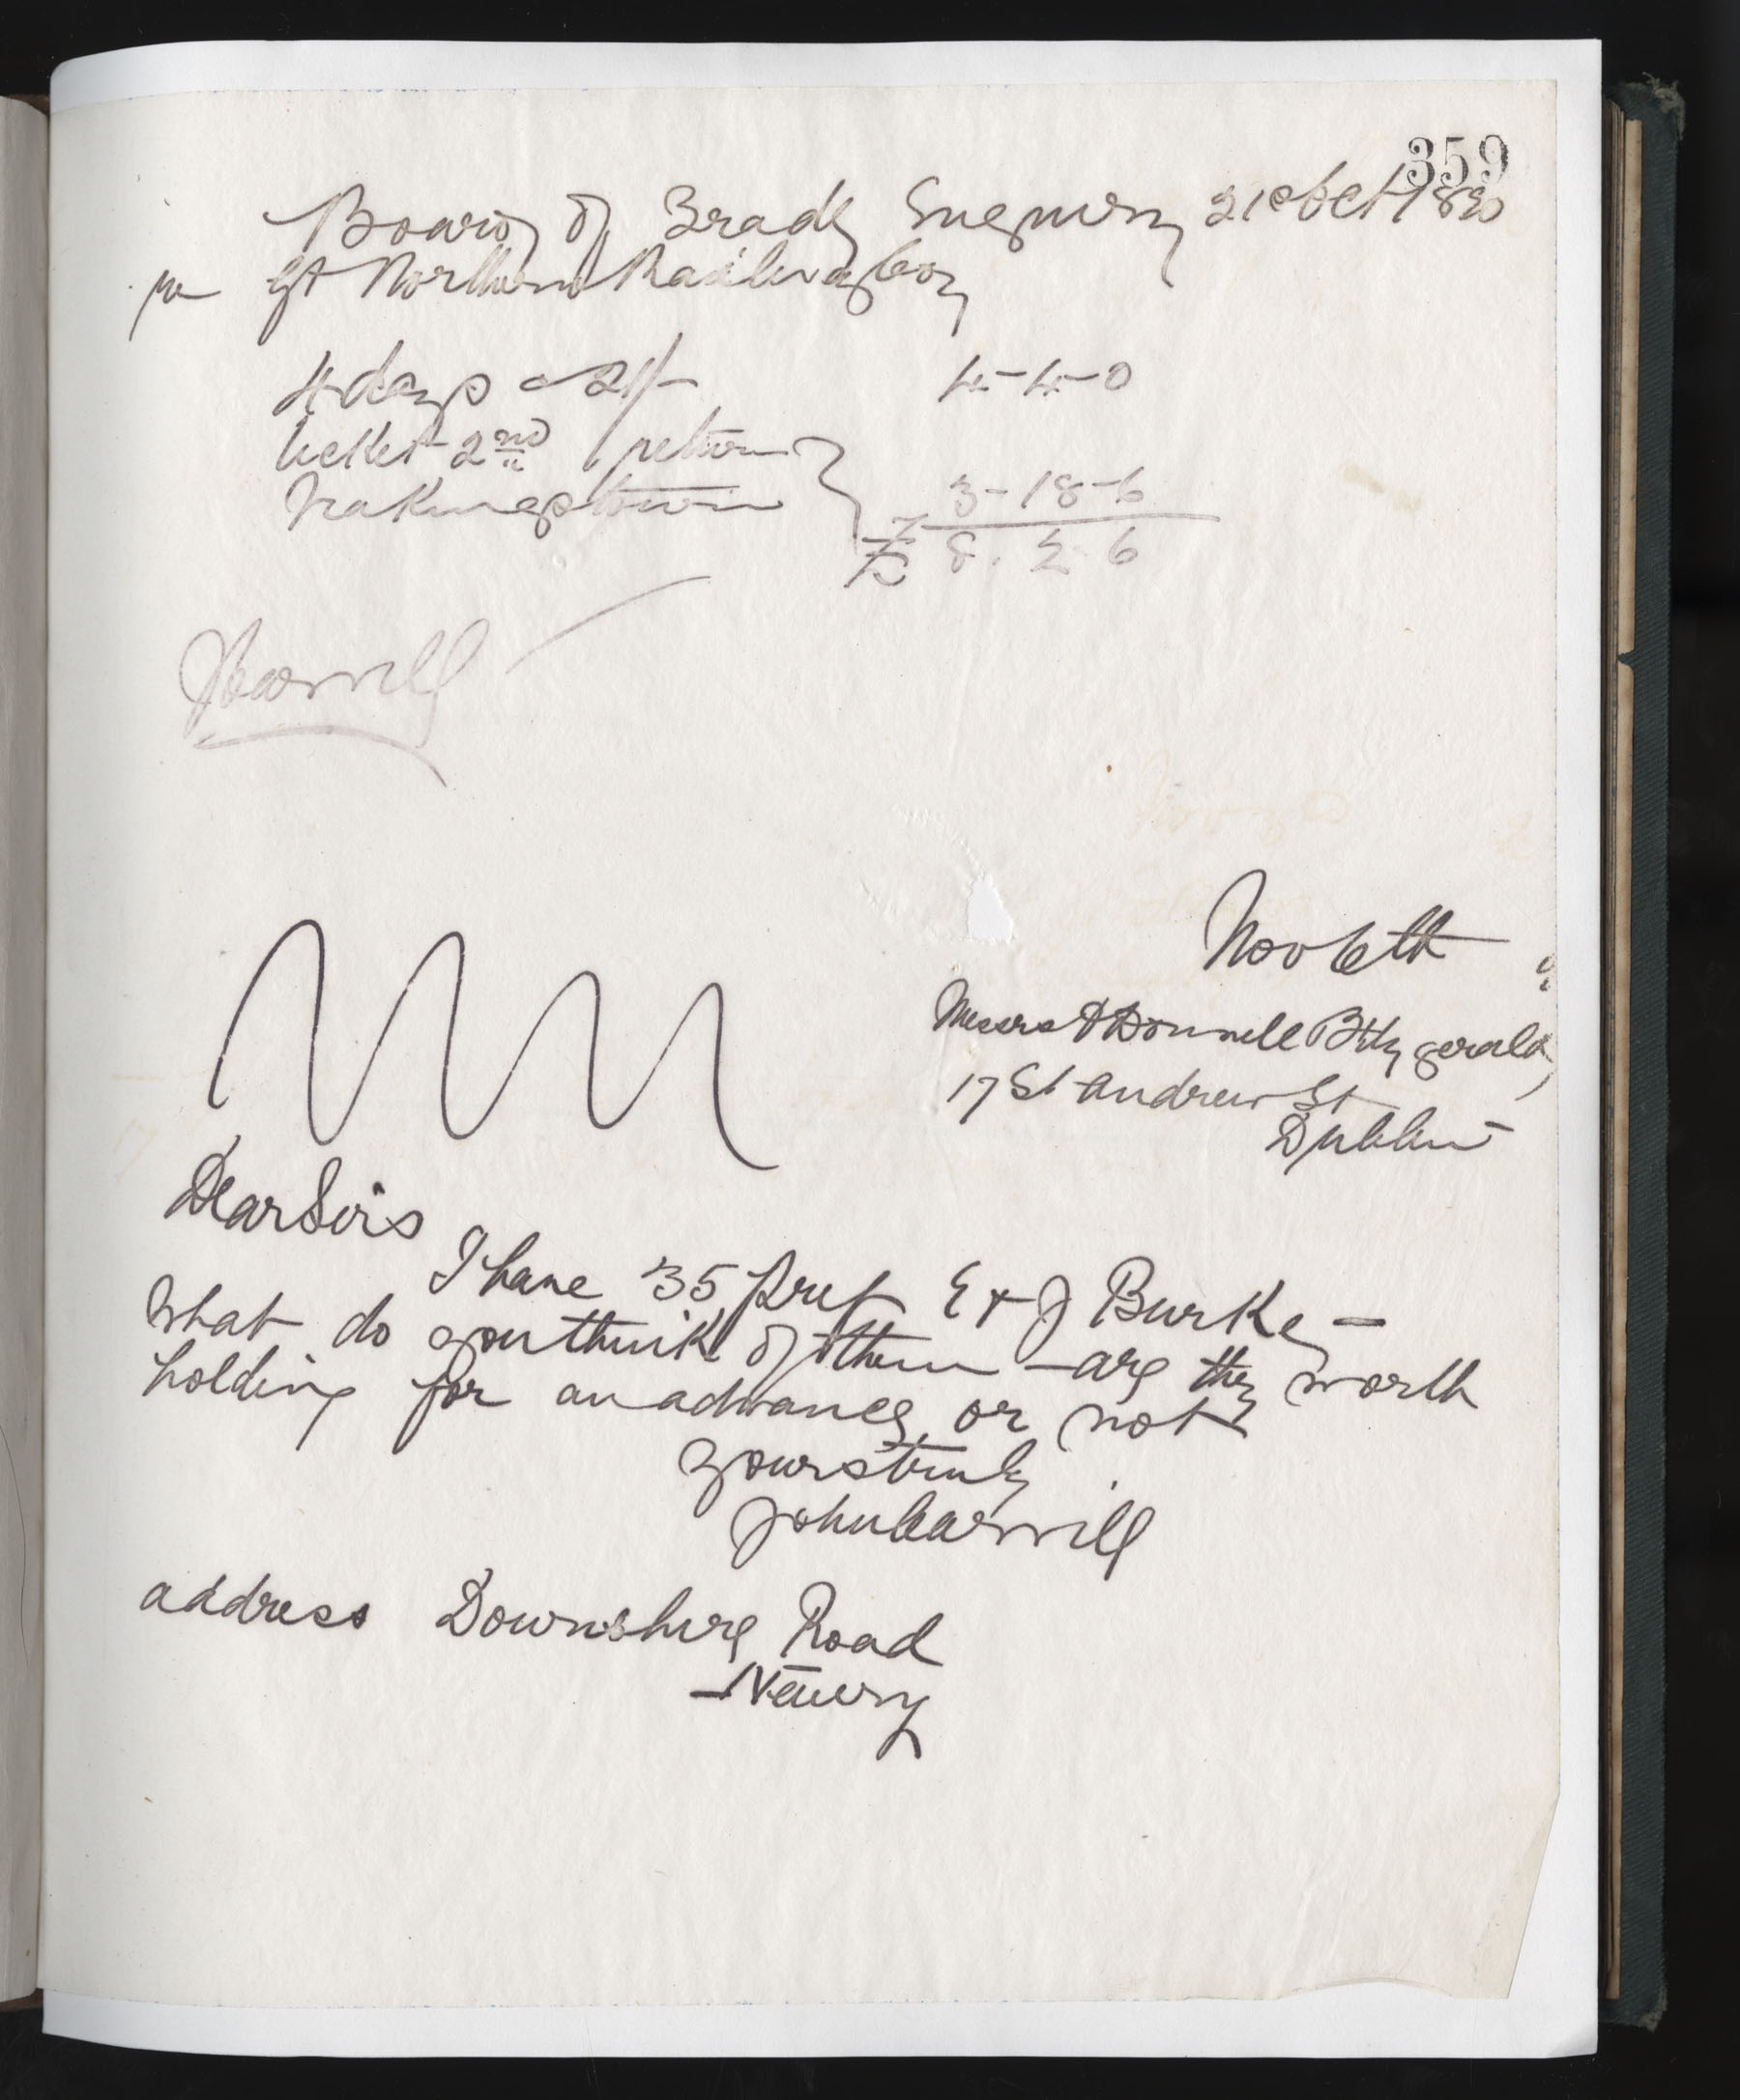 359
Board of Trade Enquiry 21st Oct 1890
re Gt Northern Railway Coy
4 days @ 21/- 4-4-0
ticket 2nd return
via Kingstown 3-18-6
£ 8. 2. 6
JCarvill
Nov 6th
Messrs O'Donnell & Fitzgerald
17 St Andrew St
Dublin
Dear Sirs
I have 35 Pref E & J Burke -
What do you think of them - are they worth
holding for an advance or not
yours truly
John Carvill
address Downshire Road
Newry